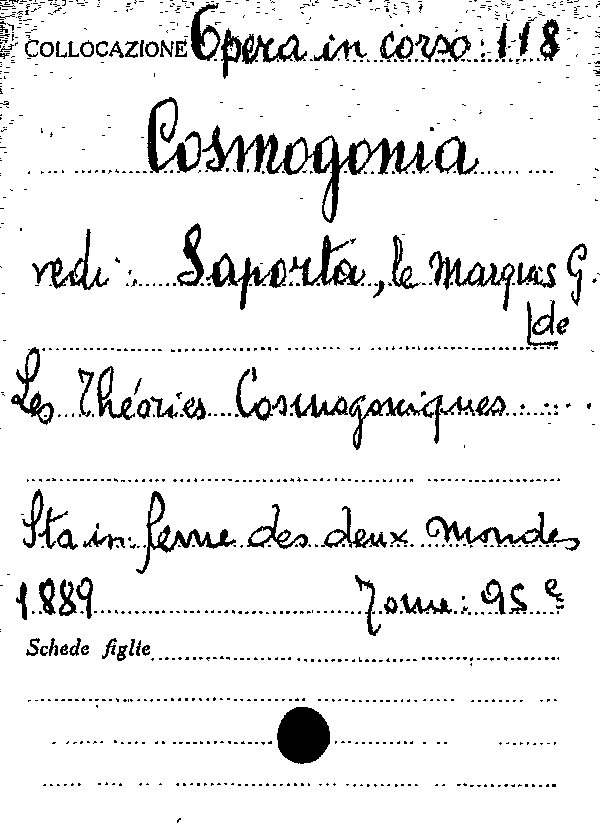 COLLOCAZIONE Opera in corso: 118
Cosmogonia
vedi: Saporta, le Marquis G.
de
Les Théories Cosmogoniques . . . . .
Sta in: Revue des deux Mondes
1889 Tome: 95 e
Schede figlie